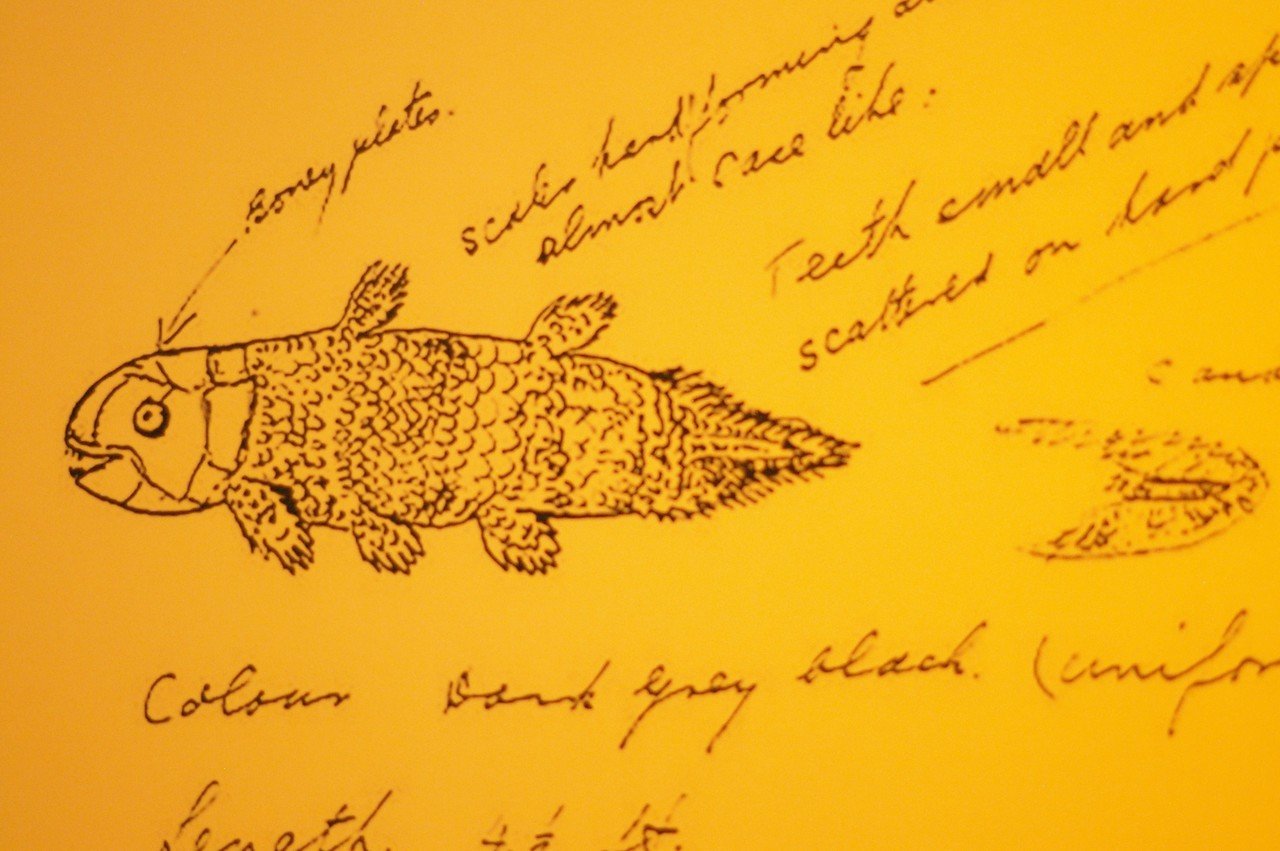 Boney plates.
scales hard forming
almost case like.
Teeth small and
scattered on hard
Colour Dark grey black. (unifor
Length.